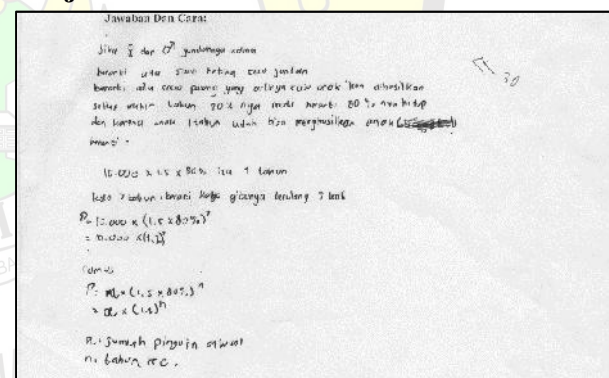 Jawaban Dan Cara:
Jika ♀ dan ♂ jumlahnya sama
berarti satu betina satu jantan
berarti ada satu pasang yang artinya satu anak dihasilkan
setiap akhir tahun 20% nya mati berarti 80% nya hidup
dan karena anak 1 tahun udah bisa menghasilkan anak
berarti :
10.000 x 1.5 x 80% itu 1 tahun
kalo 7 tahun berarti kaya gitunya terulang 7 kali
P = 10.000 x (1.5 x 80%)⁷
= 10.000 x (1,2)⁷
P = x (1,5 x 80%)ⁿ
= x (1.2)ⁿ
: jumlah pinguin awal
n : tahun ke.
30